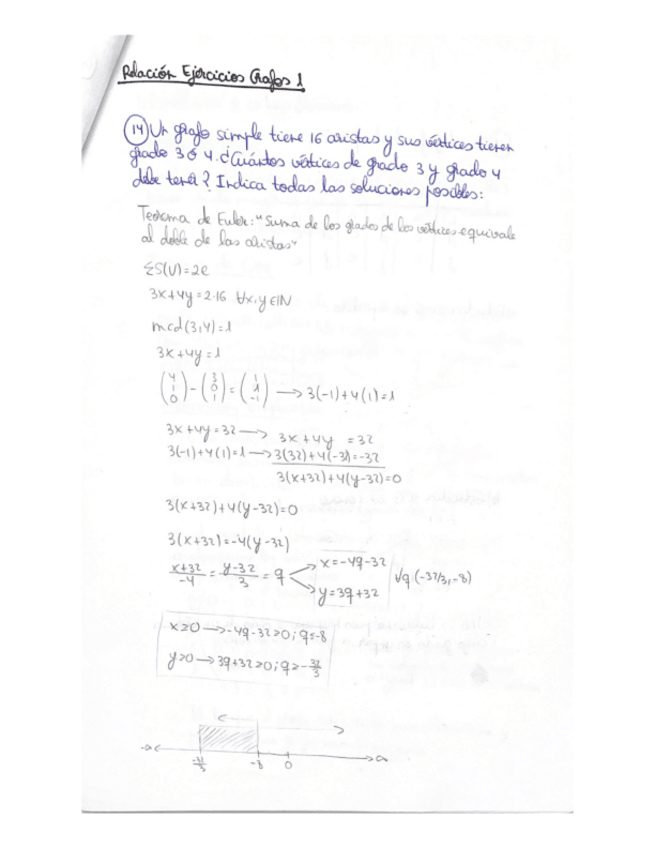 Relación Ejercicios Grafos 1
14) Un grafo simple tiene 16 aristas y sus vértices tienen
grado 3 ó 4. ¿Cuántos vértices de grado 3 y grado 4
debe tener? Indica todas las soluciones posibles:
Teorema de Euler: "Suma de los grados de los vértices equivale
al doble de las aristas"
ΣS(V)=2e
3x+4y=2·16 ∀x,y∈IN
mcd(3,4)=1
3x+4y=1
(4 1 0) - (3 0 1) = (1 1 -1) → 3(-1)+4(1)=1
3x+4y=32 → 3x+4y =32
3(-1)+4(1)=1 → 3(32)+4(-32)=-32
3(x+32)+4(y-32)=0
3(x+32)+4(y-32)=0
3(x+32)=-4(y-32)
x+32/-4 = y-32/3 = q
x=-4q-32
y=3q+32
∀q (-32/3,-8)
x≥0 → -4q-32≥0; q≤-8
y≥0 → 3q+32≥0; q≥-32/3
-∞ -32/3 -8 0 ∞